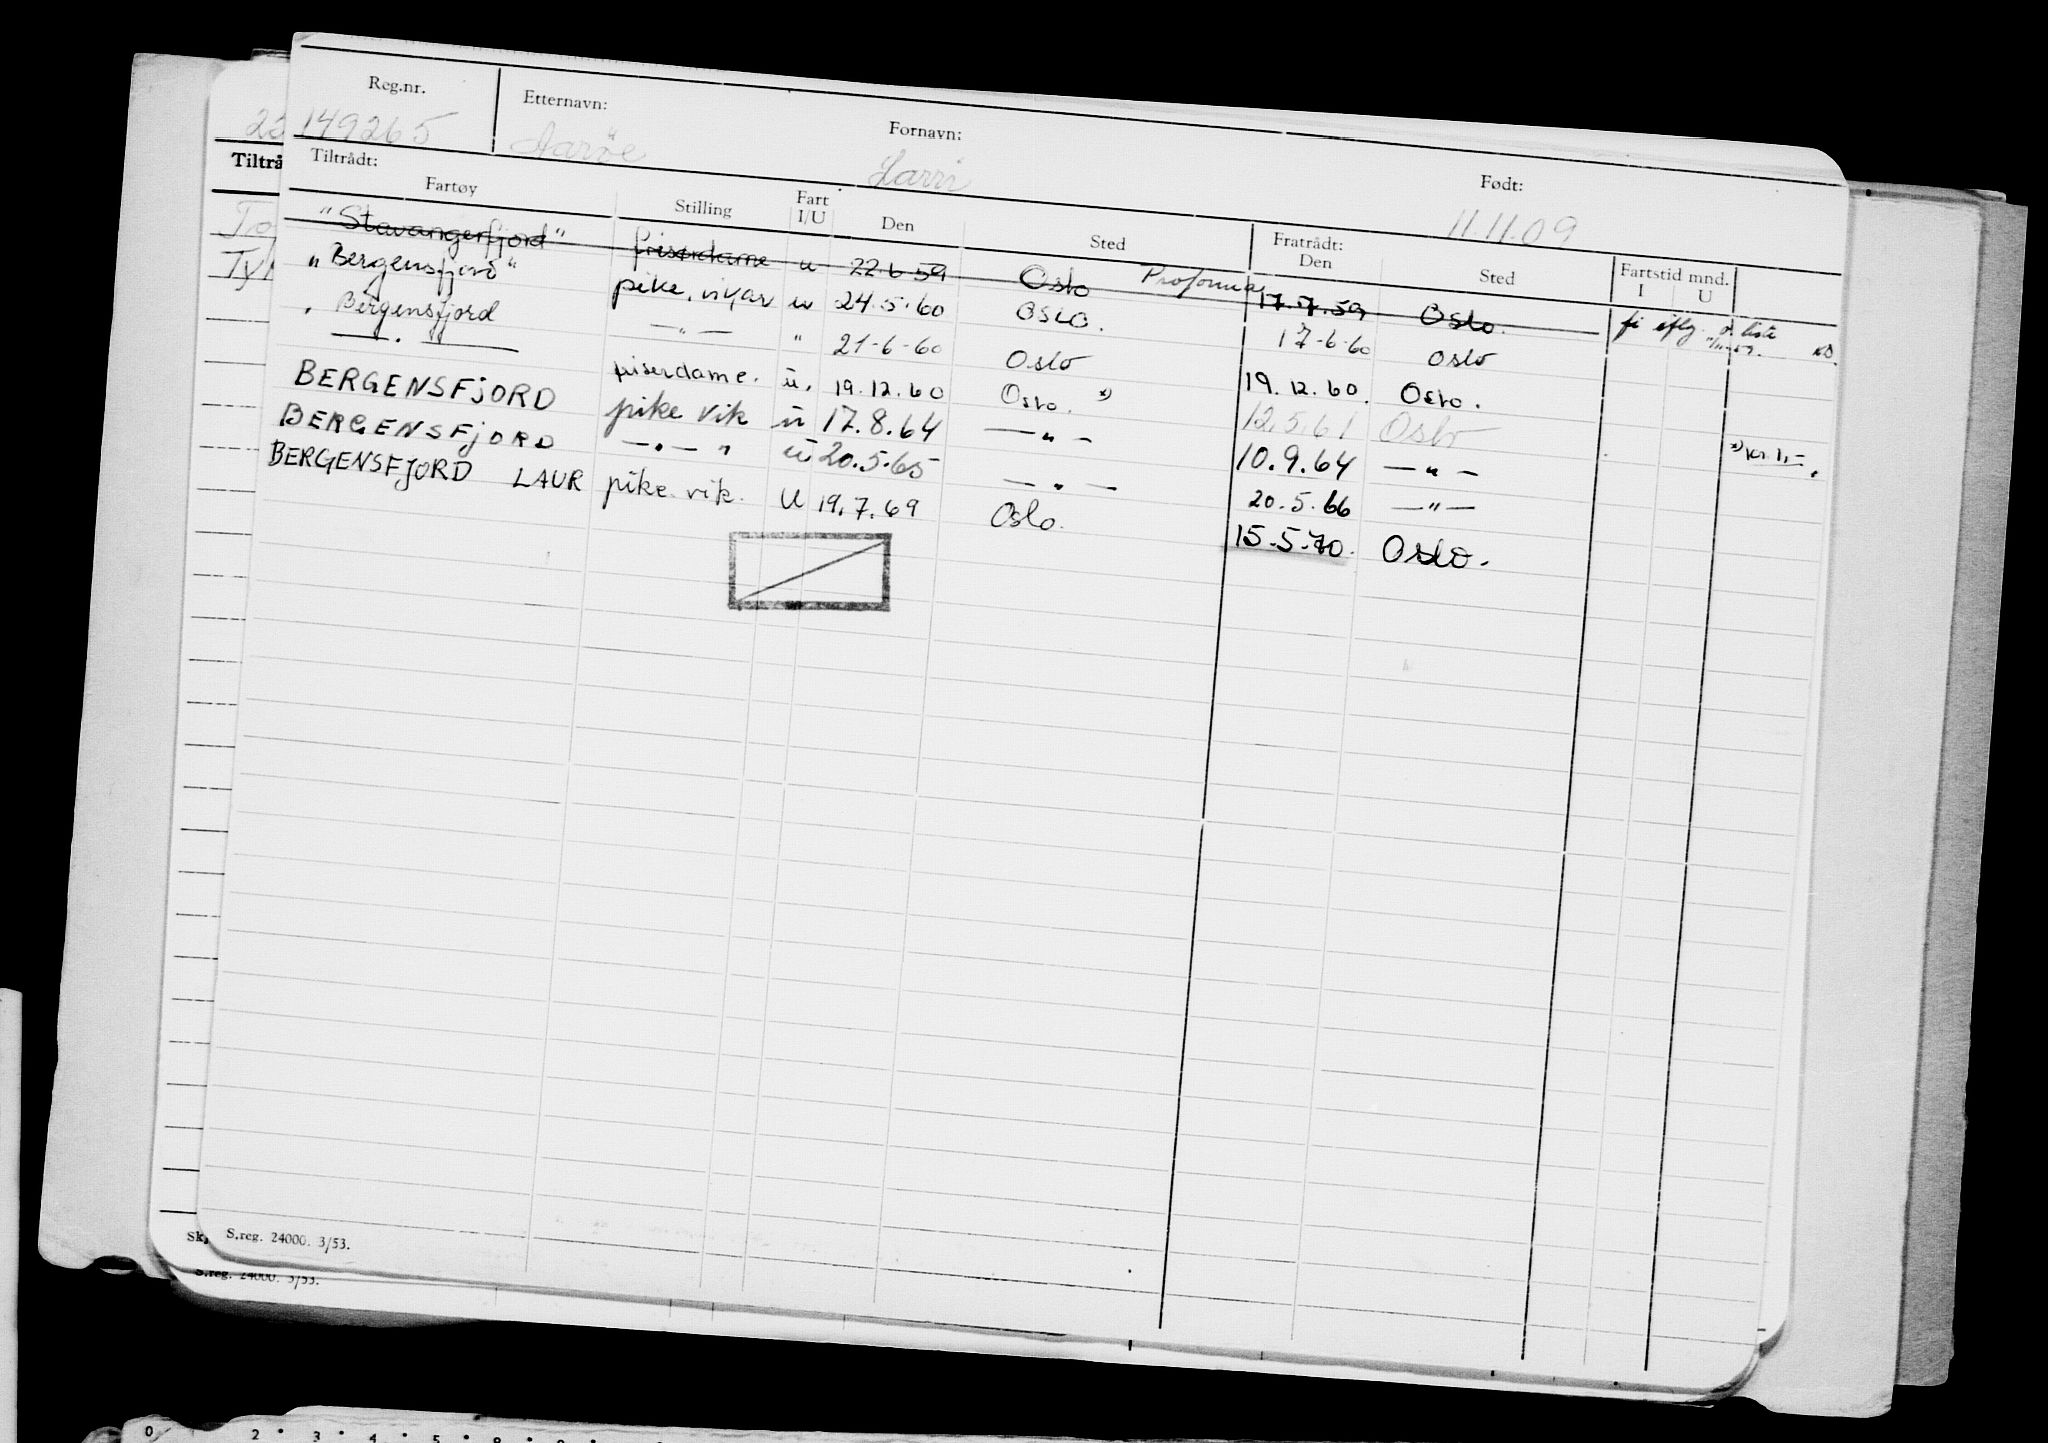 Reg.nr. Etternavn: Fornavn: Født:
149265 Larri 11.11.09
Tiltrådt: Fratrådt:
Fartøy Stilling Fart I/U Den Sted Den Sted Fartstid mnd. I U
"Stavangerfjord" friserdame u 22.6.59 Oslo Proforma 17.7.59 Oslo.
"Bergensfjord" pike, vikar u 24.5.60 OSLO. 17-6-60 Oslo
" Bergensfjord — " — " 21-6-60 Oslo 19.12.60. Oslo.
— " — friserdame. u. 19.12.60 Oslo. x) 12.5.61 Oslo x) kr. 1,-
BERGENSFJORD pike vik u 17.8.64 — " — 10.9.64 — " —
BERGENSFJORD — " — " u 20.5.65 — " — 20.5.66 — " —
BERGENSFJORD LAUR pike vik. U 19.7.69 Oslo. 15.5.70. Oslo.
S.reg. 24000. 3/53.
S.reg. 24000. 3/53.
0 2 3 4 5